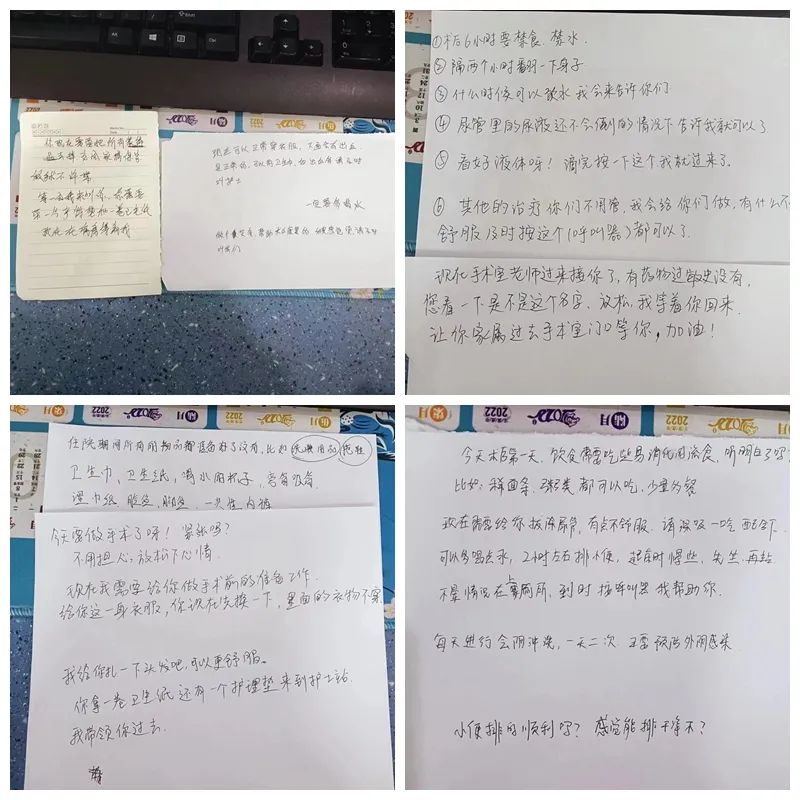 你现在需要把所有首饰
放到不许带
第一台
我在这病房等着我
现在可以正常穿衣服，
是正常的，
叶护士
一定要多喝水
①术后6小时要禁食、禁水.
②隔两个小时翻一下身子
③什么时候可以饮水我会来告诉你们
④尿管里的尿液还不会倒的情况下告诉我就可以了
⑤看好液体呀！滴完按一下这个我就过来了.
⑥其他的治疗你们不用管，我会给你们做，有什么不
舒服及时按这个（呼叫器）都可以了.
现在手术室老师过来接你了，有药物过敏史没有，
您看一下是不是这个名字，放松，我等着你回来.
让你家属过去手术室门口等你，加油！
住院期间所有用物品都准备好了没有，比如洗漱用品，拖鞋
卫生巾、卫生纸，喝水用杯子，弯头吸管
湿巾纸 脸盆，脚盆，一次性内裤
今天要做手术了呀！紧张吗？
不用担心，放松下心情.
现在我需要给你做手术前的准备工作.
给你这一身衣服，你现在先换一下，里面的衣物不穿
我给你扎一下头发吧，可以更舒服。
你拿一卷卫生纸还有一个护理垫来到护士站.
我带领你过去.
今天术后第一天，饮食需要吃些易消化的流食，听明白了吗？
比如：稀面条、粥类都可以吃，少量多餐
现在需要给你拔除尿管，有点不舒服，请深吸一口气
可以多喝点水，2小时左右排小便，起身时慢些，先坐，再站
不晕情况在上厕所，到时按呼叫器我帮助你.
每天进行会阴冲洗，一天二次，主要预防外阴感染
小便排的顺利吗？感觉能排干净不？